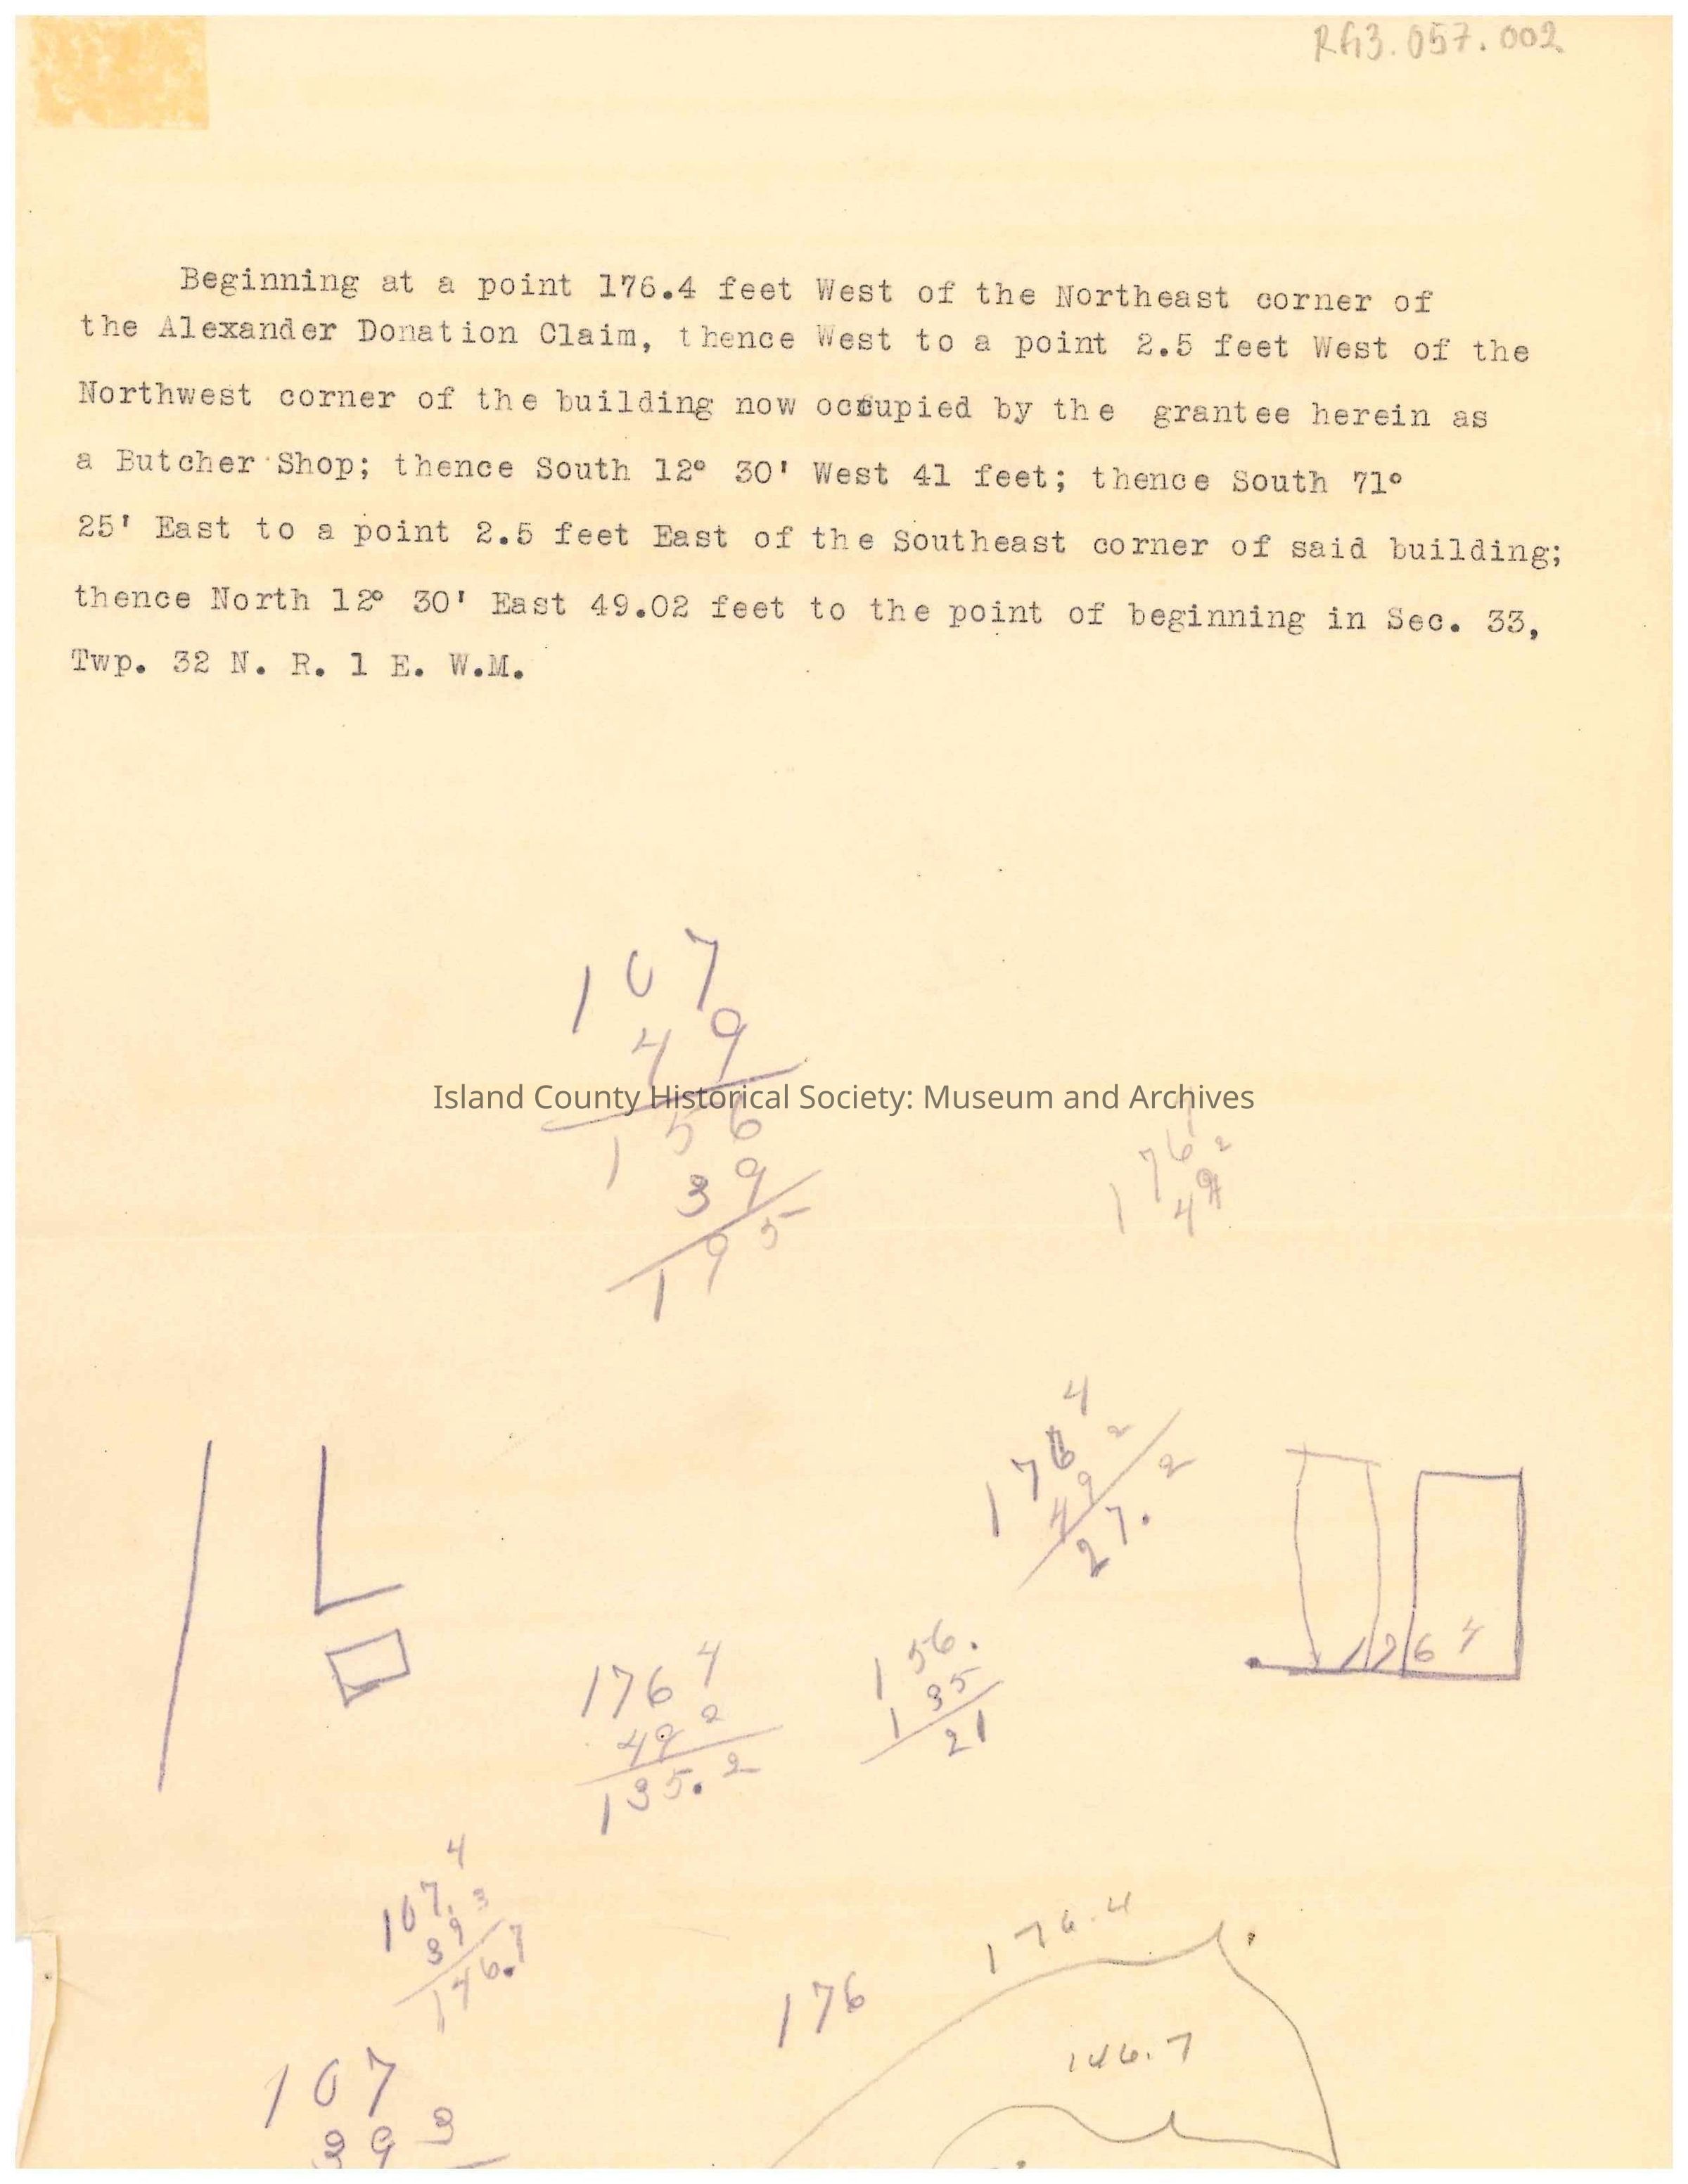 RG3.057.002
Beginning at a point 176.4 feet West of the Northeast corner of
the Alexander Donation Claim, thence West to a point 2.5 feet West of the
Northwest corner of the building now occupied by the grantee herein as
a Butcher Shop; thence South 12° 30' West 41 feet; thence South 71°
25' East to a point 2.5 feet East of the Southeast corner of said building;
thence North 12° 30' East 49.02 feet to the point of beginning in Sec. 33,
Twp. 32 N. R. 1 E. W.M.
107
49
Island County Historical Society: Museum and Archives
156
39
195
176 2
49
4
176 2
49 2
27.
176 4
49 2
135.2
156.
135
21
1764
4
107. 3
39
146.7
176.4
176
146.7
107
39 3